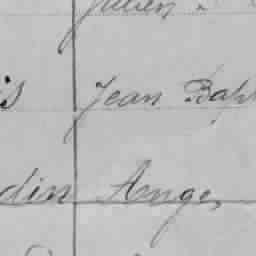 Julien
is Jean Bap
din Ange